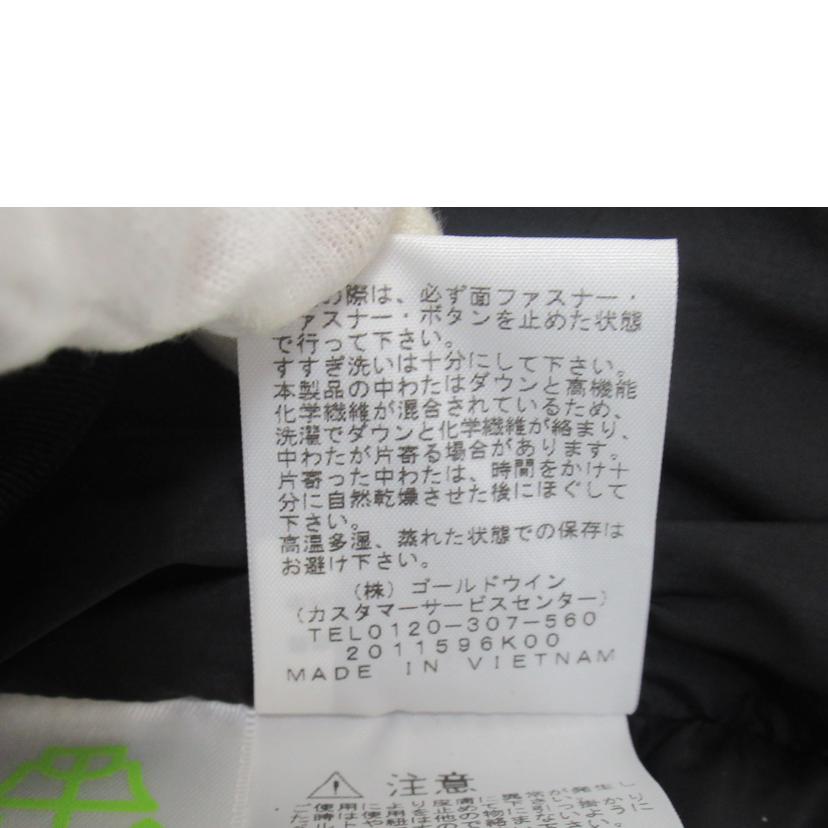 の際は、必ず面ファスナー・
ァスナー・ボタンを止めた状態
で行って下さい。
すすぎ洗いは十分にして下さい。
本製品の中わたはダウンと高機能
化学繊維が混合されているため、
洗濯でダウンと化学繊維が絡まり、
中わたが片寄る場合があります。
片寄った中わたは、時間をかけ十
分に自然乾燥させた後にほぐして
下さい。
高温多湿、蒸れた状態での保存は
お避け下さい。
(株) ゴールドウイン
(カスタマーサービスセンター)
TEL0120-307-560
2011596K00
MADE IN VIETNAM
注意